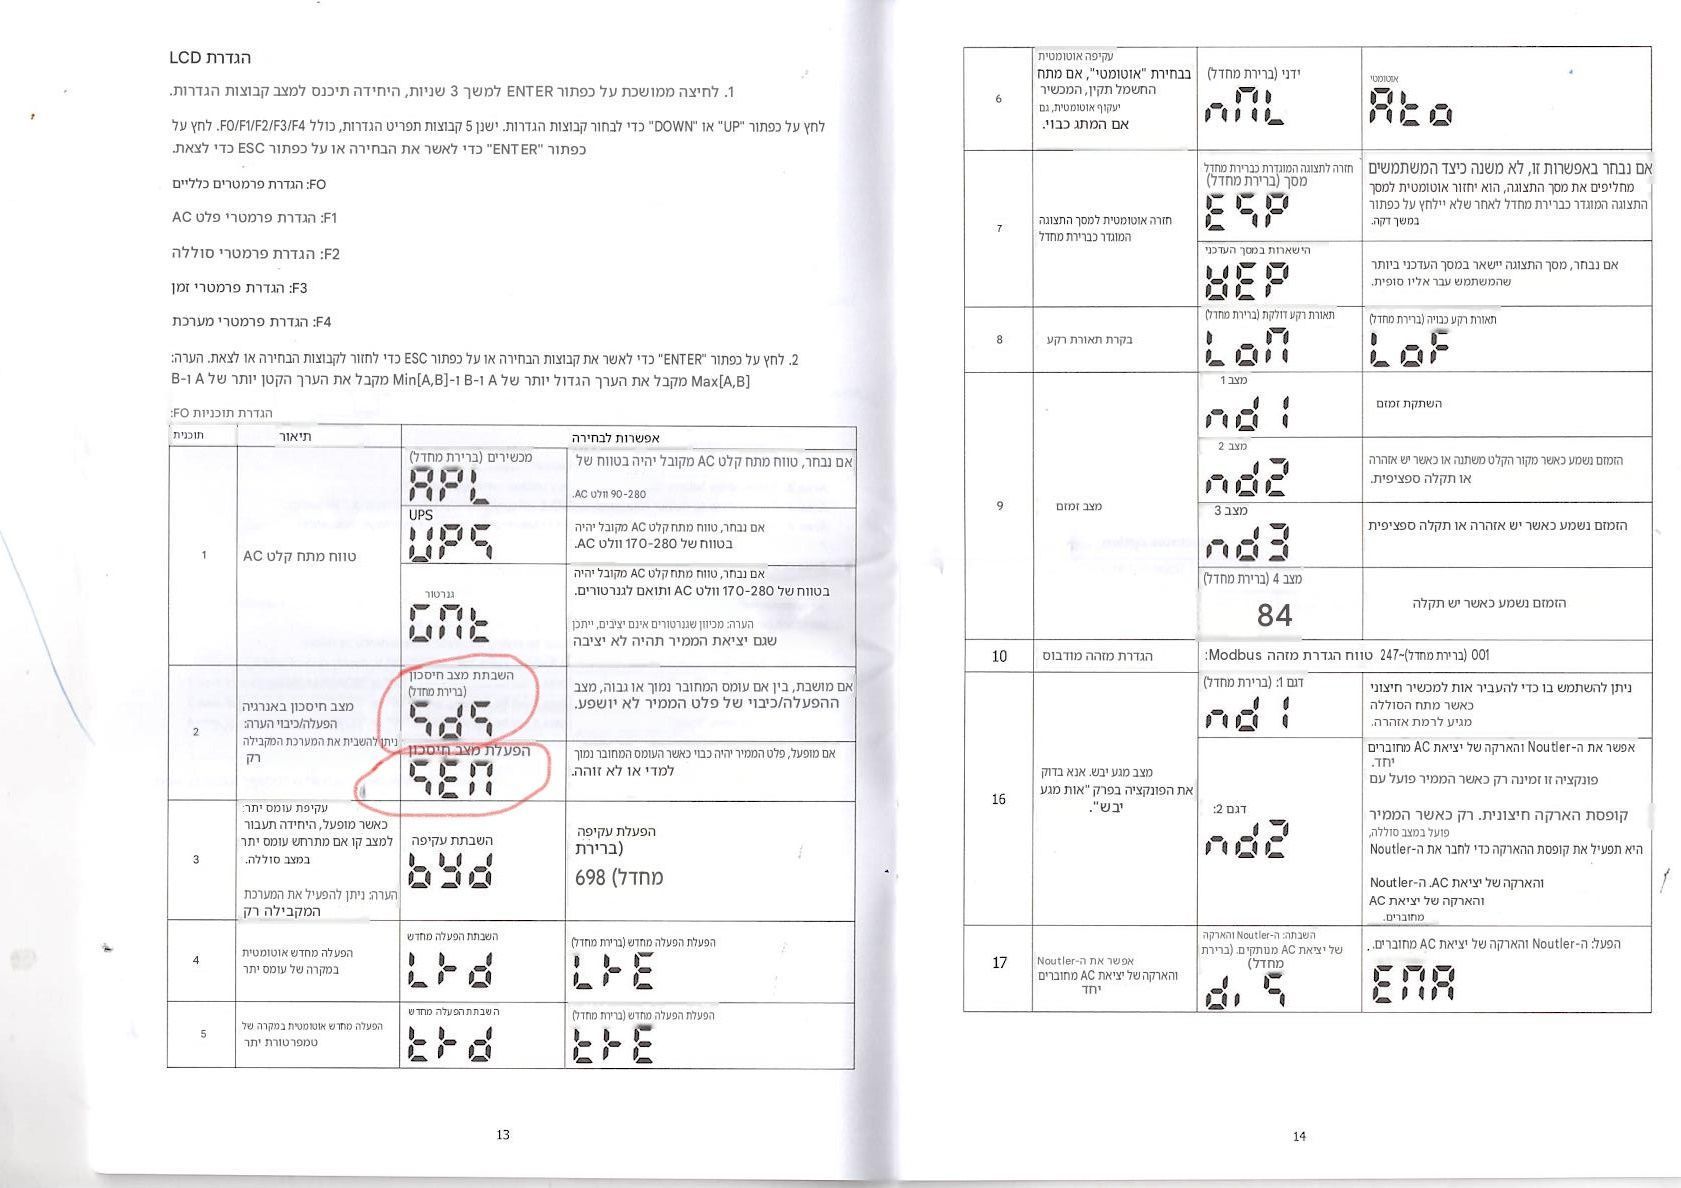 הגדרת LCD
1. לחיצה ממושכת על כפתור ENTER למשך 3 שניות, היחידה תיכנס למצב קבוצות הגדרות.
לחץ על כפתור "UP" או "DOWN" כדי לבחור קבוצות הגדרות. ישנן 5 קבוצות תפריט הגדרות, כולל F0/F1/F2/F3/F4. לחץ על
כפתור "ENTER" כדי לאשר את הבחירה או על כפתור ESC כדי לצאת.
FO: הגדרת פרמטרים כלליים
F1: הגדרת פרמטרי פלט AC
F2: הגדרת פרמטרי סוללה
F3: הגדרת פרמטרי זמן
F4: הגדרת פרמטרי מערכת
2. לחץ על כפתור "ENTER" כדי לאשר את קבוצות הבחירה או על כפתור ESC כדי לחזור לקבוצות הבחירה או לצאת. הערה:
Max[A,B] מקבל את הערך הגדול יותר של A ו-B ו-Min[A,B] מקבל את הערך הקטן יותר של A ו-B
הגדרת תוכניות FO:
תוכנית
תיאור
אפשרות לבחירה
1
טווח מתח קלט AC
מכשירים (ברירת מחדל)
APL
אם נבחר, טווח מתח קלט AC מקובל יהיה בטווח של
90-280 וולט AC.
UPS
UPS
אם נבחר, טווח מתח קלט AC מקובל יהיה
בטווח של 170-280 וולט AC.
גנרטור
GNt
אם נבחר, טווח מתח קלט AC מקובל יהיה
בטווח של 170-280 וולט AC ותואם לגנרטורים.
הערה: מכיוון שגנרטורים אינם יציבים, ייתכן
שגם יציאת הממיר תהיה לא יציבה
2
מצב חיסכון באנרגיה
הפעלה/כיבוי הערה:
ניתן להשבית את המערכת המקבילה
רק
השבתת מצב חיסכון
(ברירת מחדל)
SdS
אם מושבת, בין אם עומס המחובר נמוך או גבוה, מצב
ההפעלה/כיבוי של פלט הממיר לא יושפע.
הפעלת מצב חיסכון
SEN
אם מופעל, פלט הממיר יהיה כבוי כאשר העומס המחובר נמוך
למדי או לא זוהה.
3
עקיפת עומס יתר:
כאשר מופעל, היחידה תעבור
למצב קו אם מתרחש עומס יתר
במצב סוללה.
הערה: ניתן להפעיל את המערכת
המקבילה רק
השבתת עקיפה
bYd
הפעלת עקיפה
(ברירת
מחדל) 698
4
הפעלה מחדש אוטומטית
במקרה של עומס יתר
השבתת הפעלה מחדש
Ltd
הפעלת הפעלה מחדש (ברירת מחדל)
LtE
5
הפעלה מחדש אוטומטית במקרה של
טמפרטורת יתר
השבתת הפעלה מחדש
ttd
הפעלת הפעלה מחדש (ברירת מחדל)
ttE
13
6
עקיפה אוטומטית
בבחירת "אוטומטי", אם מתח
החשמל תקין, המכשיר
יעקוף אוטומטית, גם
אם המתג כבוי.
ידני (ברירת מחדל)
nML
אוטומטי
Ato
7
חזרה אוטומטית למסך התצוגה
המוגדר כברירת מחדל
חזרה לתצוגה המוגדרת כברירת מחדל
מסך (ברירת מחדל)
ESP
אם נבחר באפשרות זו, לא משנה כיצד המשתמשים
מחליפים את מסך התצוגה, הוא יחזור אוטומטית למסך
התצוגה המוגדר כברירת מחדל לאחר שלא יילחץ על כפתור
במשך דקה.
הישארות במסך העדכני
KEP
אם נבחר, מסך התצוגה יישאר במסך העדכני ביותר
שהמשתמש עבר אליו סופית.
8
בקרת תאורת רקע
תאורת רקע דולקת (ברירת מחדל)
LoN
תאורת רקע כבויה (ברירת מחדל)
LoF
9
מצב זמזם
מצב 1
nd1
השתקת זמזם
מצב 2
nd2
הזמזם נשמע כאשר מקור הקלט משתנה או כאשר יש אזהרה
או תקלה ספציפית.
מצב 3
nd3
הזמזם נשמע כאשר יש אזהרה או תקלה ספציפית
מצב 4 (ברירת מחדל)
84
הזמזם נשמע כאשר יש תקלה
10
הגדרת מזהה מודבוס
טווח הגדרת מזהה Modbus: 001 (ברירת מחדל)~247
16
מצב מגע יבש. אנא בדוק
את הפונקציה בפרק "אות מגע
יבש".
דגם 1: (ברירת מחדל)
nd1
ניתן להשתמש בו כדי להעביר אות למכשיר חיצוני
כאשר מתח הסוללה
מגיע לרמת אזהרה.
דגם 2:
nd2
אפשר את ה-Noutler והארקה של יציאת AC מחוברים
יחד.
פונקציה זו זמינה רק כאשר הממיר פועל עם
קופסת הארקה חיצונית. רק כאשר הממיר
פועל במצב סוללה,
היא תפעיל את קופסת ההארקה כדי לחבר את ה-Noutler
והארקה של יציאת AC. ה-Noutler
והארקה של יציאת AC
מחוברים.
17
אפשר את ה-Noutler
והארקה של יציאת AC מחוברים
יחד
השבתה: ה-Noutler והארקה
של יציאת AC מנותקים. (ברירת
מחדל)
diS
הפעל: ה-Noutler והארקה של יציאת AC מחוברים. .
ENA
14